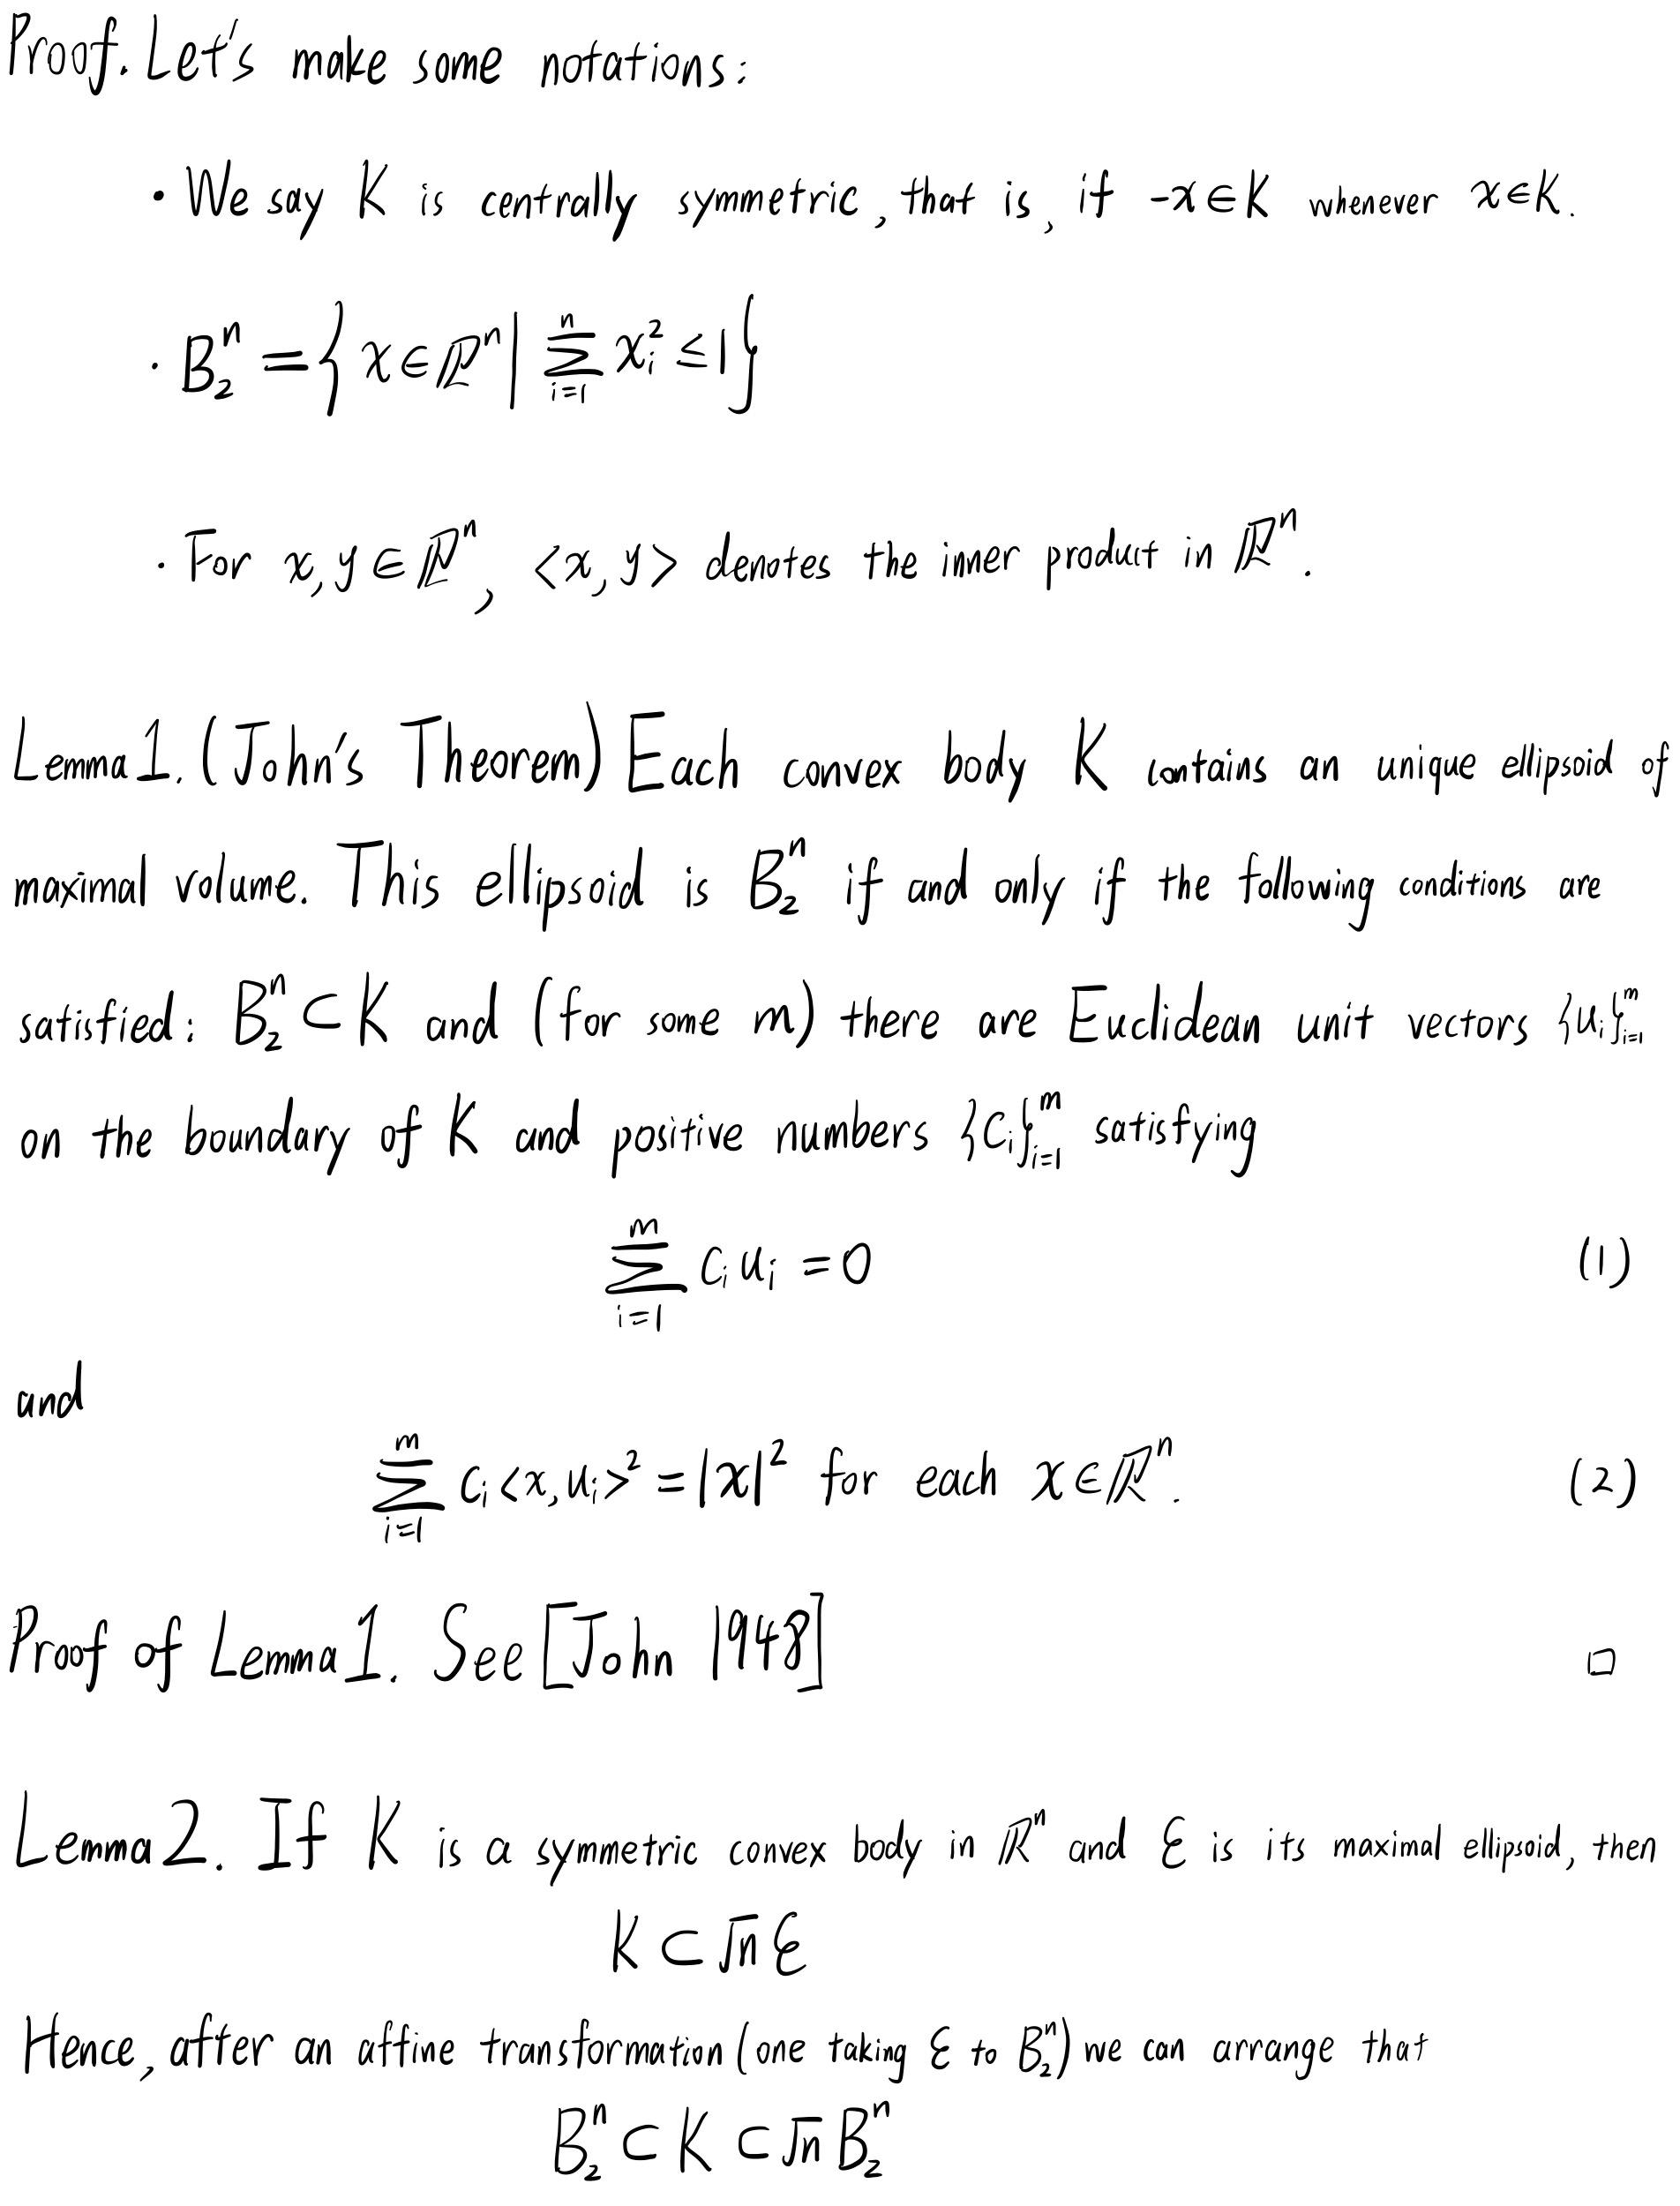 Proof. Let's make some notations:
· We say K is centrally symmetric, that is, if -x∈K whenever x∈K.
· B₂ⁿ = { x∈ℝⁿ | ∑_{i=1}^{n} x_i² ≤ 1 }
· For x, y ∈ ℝⁿ, <x, y> denotes the inner product in ℝⁿ.
Lemma 1. (John's Theorem) Each convex body K contains an unique ellipsoid of
maximal volume. This ellipsoid is B₂ⁿ if and only if the following conditions are
satisfied: B₂ⁿ ⊂ K and (for some m) there are Euclidean unit vectors {u_i}_{i=1}^{m}
on the boundary of K and positive numbers {c_i}_{i=1}^{m} satisfying
∑_{i=1}^{m} c_i u_i = 0 (1)
and
∑_{i=1}^{m} c_i <x, u_i>² = |x|² for each x∈ℝⁿ. (2)
Proof of Lemma 1. See [John 1948] □
Lemma 2. If K is a symmetric convex body in ℝⁿ and ℰ is its maximal ellipsoid, then
K ⊂ √n ℰ
Hence, after an affine transformation (one taking ℰ to B₂ⁿ) we can arrange that
B₂ⁿ ⊂ K ⊂ √n B₂ⁿ